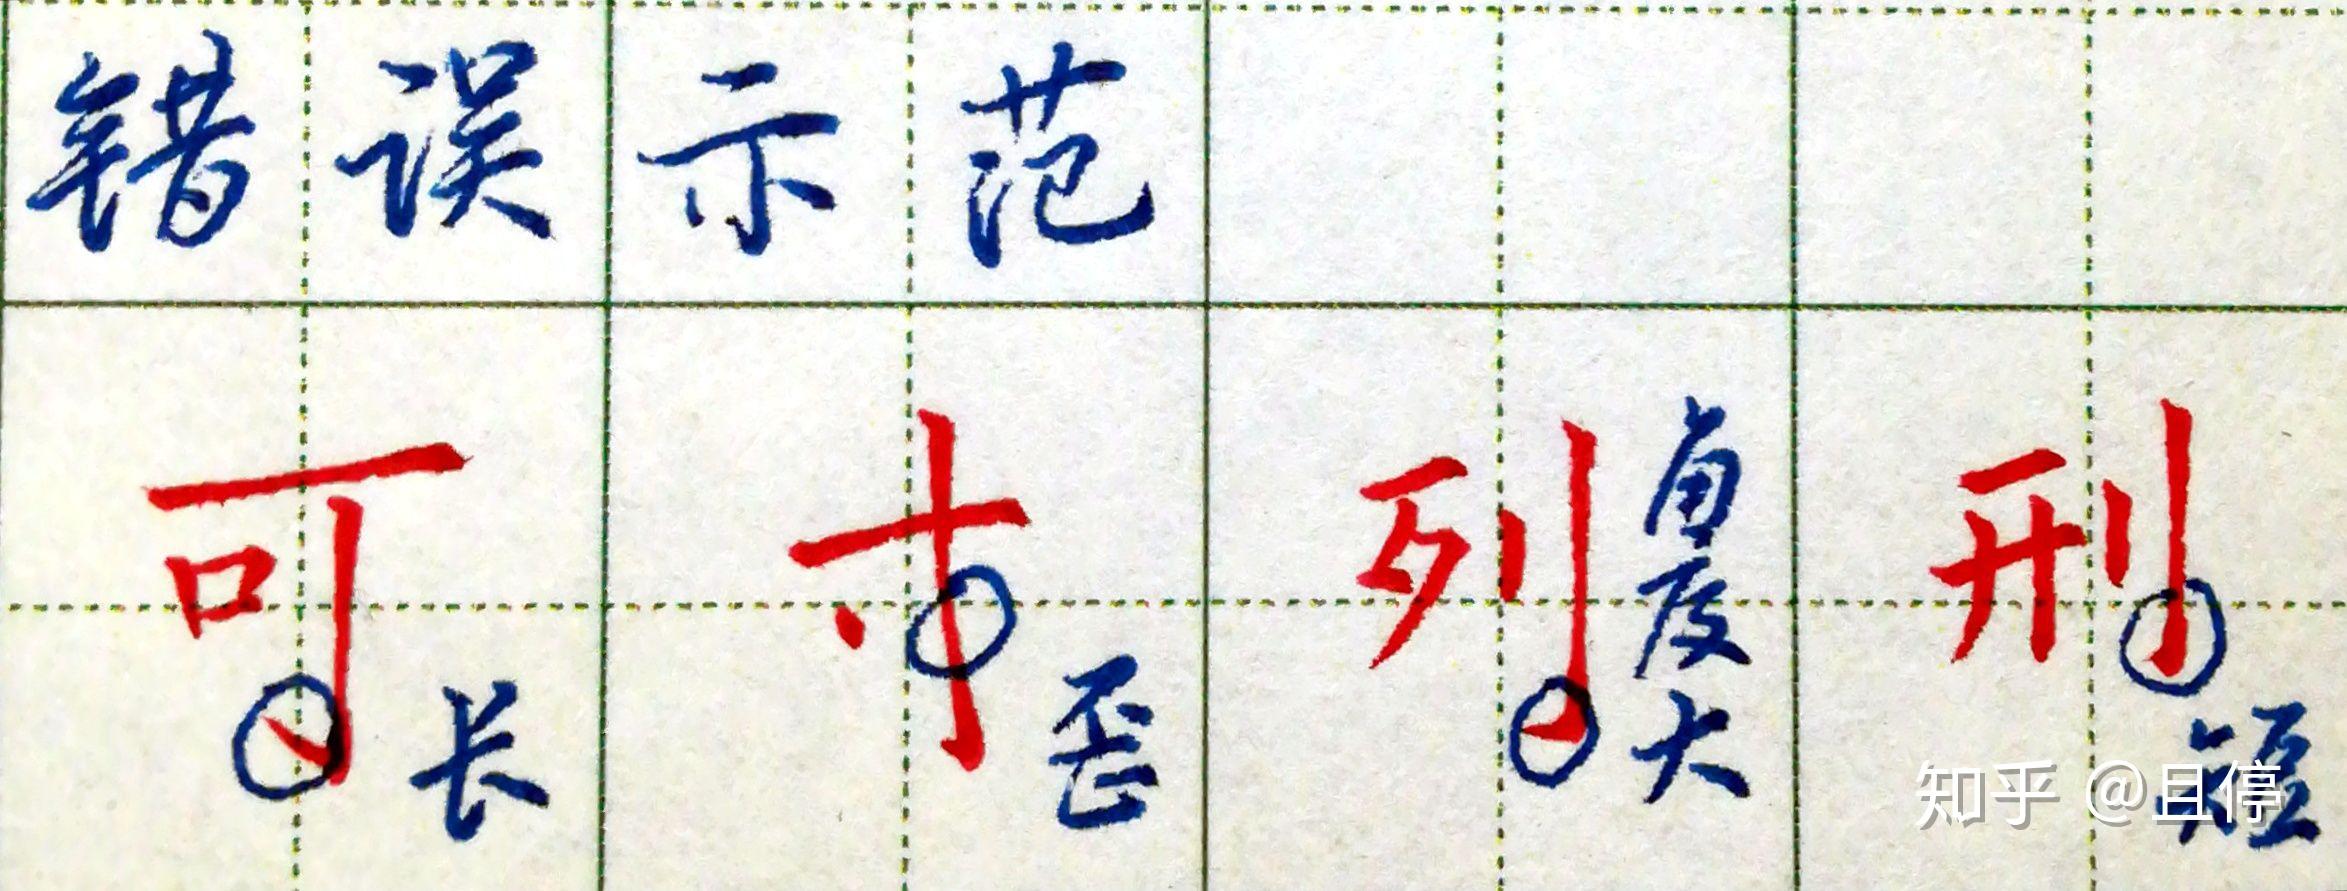 错误示范
可 长 寸 歪 列 角度大 刑 短
知乎 @且停